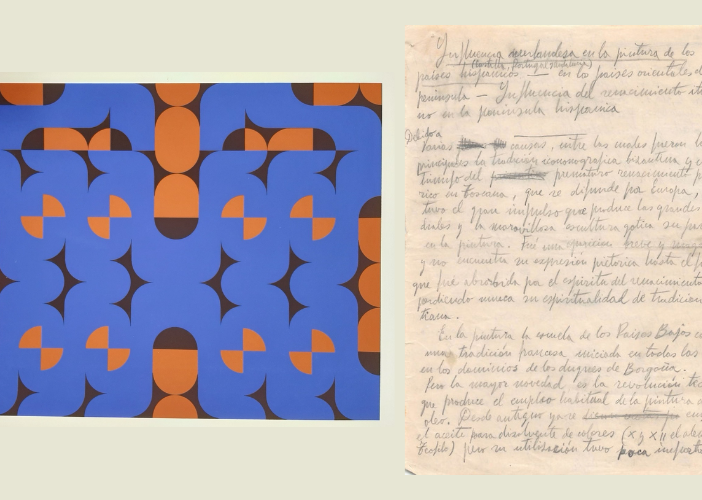 Influencia neerlandesa en la pintura de los
(Castilla, Portugal
países hispánicos — en los países orientales de
península — Influencia del renacimiento it
no en la península hispanica
Debido a
Varias causas, entre las cuales fueron l
principales la tradición iconografica bizantina y
triunfo del prematuro renacimiento p
rico en Toscana, que se difunde por Europa,
tuvo el gran impulso que produce las grandes
drales y la maravillosa escultura gotica su
en la pintura. Fué una aparicion breve y
y no encuentra su expresión pictorica hasta el
que fue absorbida por el espiritu del renacimiento
perdiendo nunca su espiritualidad de tradicion
tiana.
En la pintura la escuela de los Países Bajos
una tradición francesa iniciada en todas las
en los dominios de los duques de Borgoña.
Pero la mayor novedad es la revolución
que produce el empleo habitual de la pintura
oleo. Desde antiguo ya se
el aceite para disolvente de colores (X y XII
Teofilo) pero su utilización tuvo poca